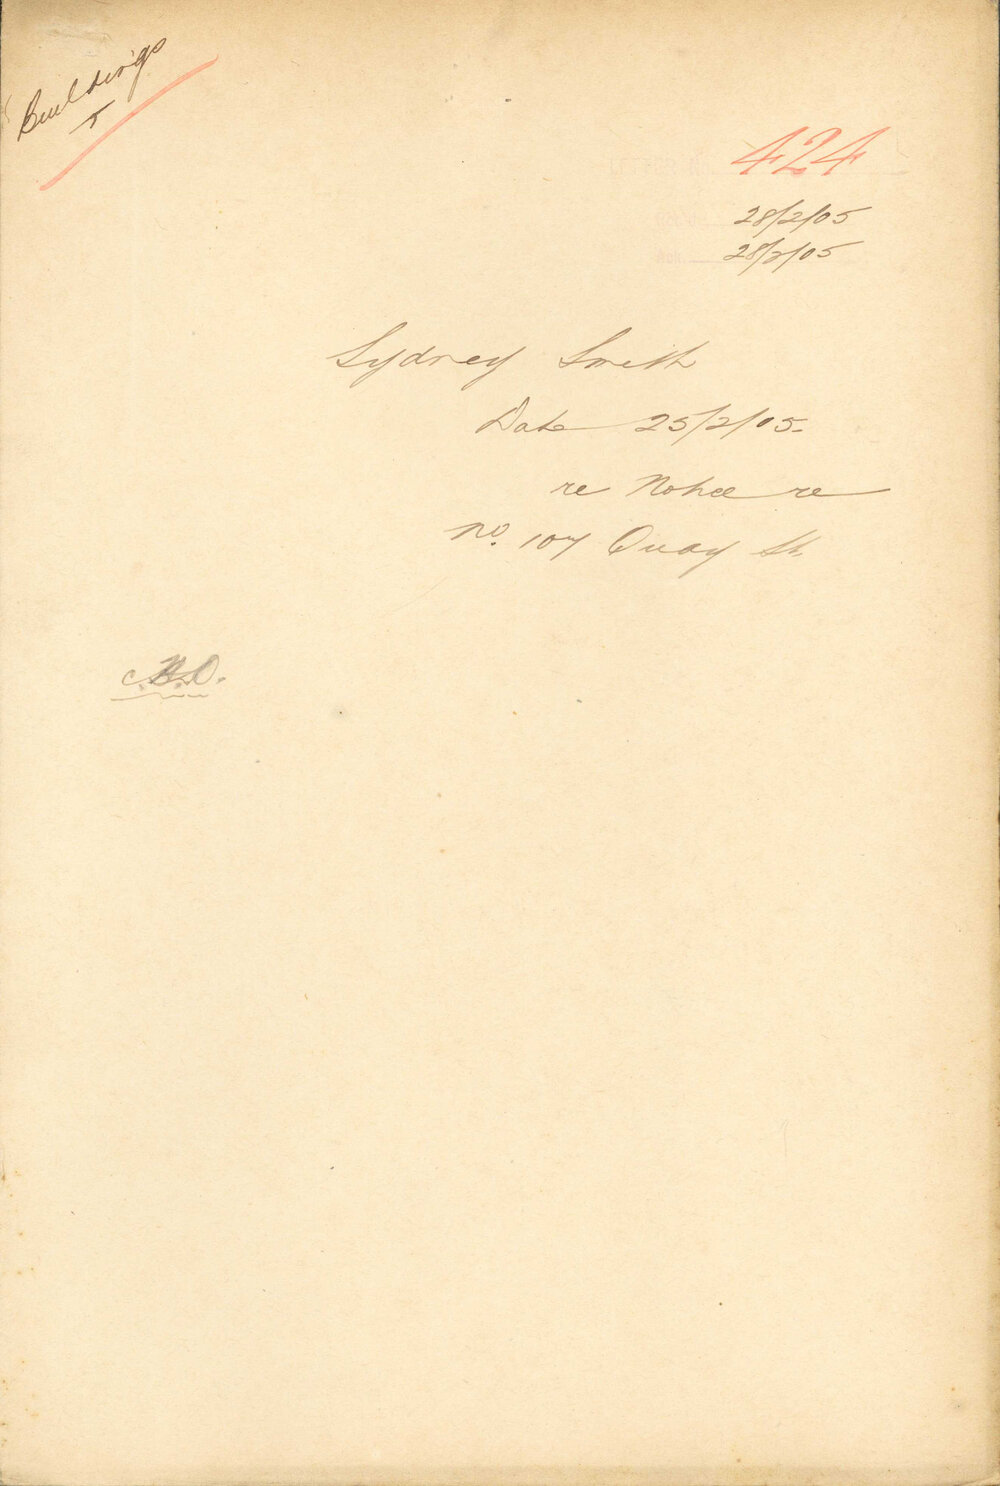 Buildings
5
424
28/2/05
28/2/05
Sydney Smith
Date 25/2/05.
re Notice re
No. 107 Quay St